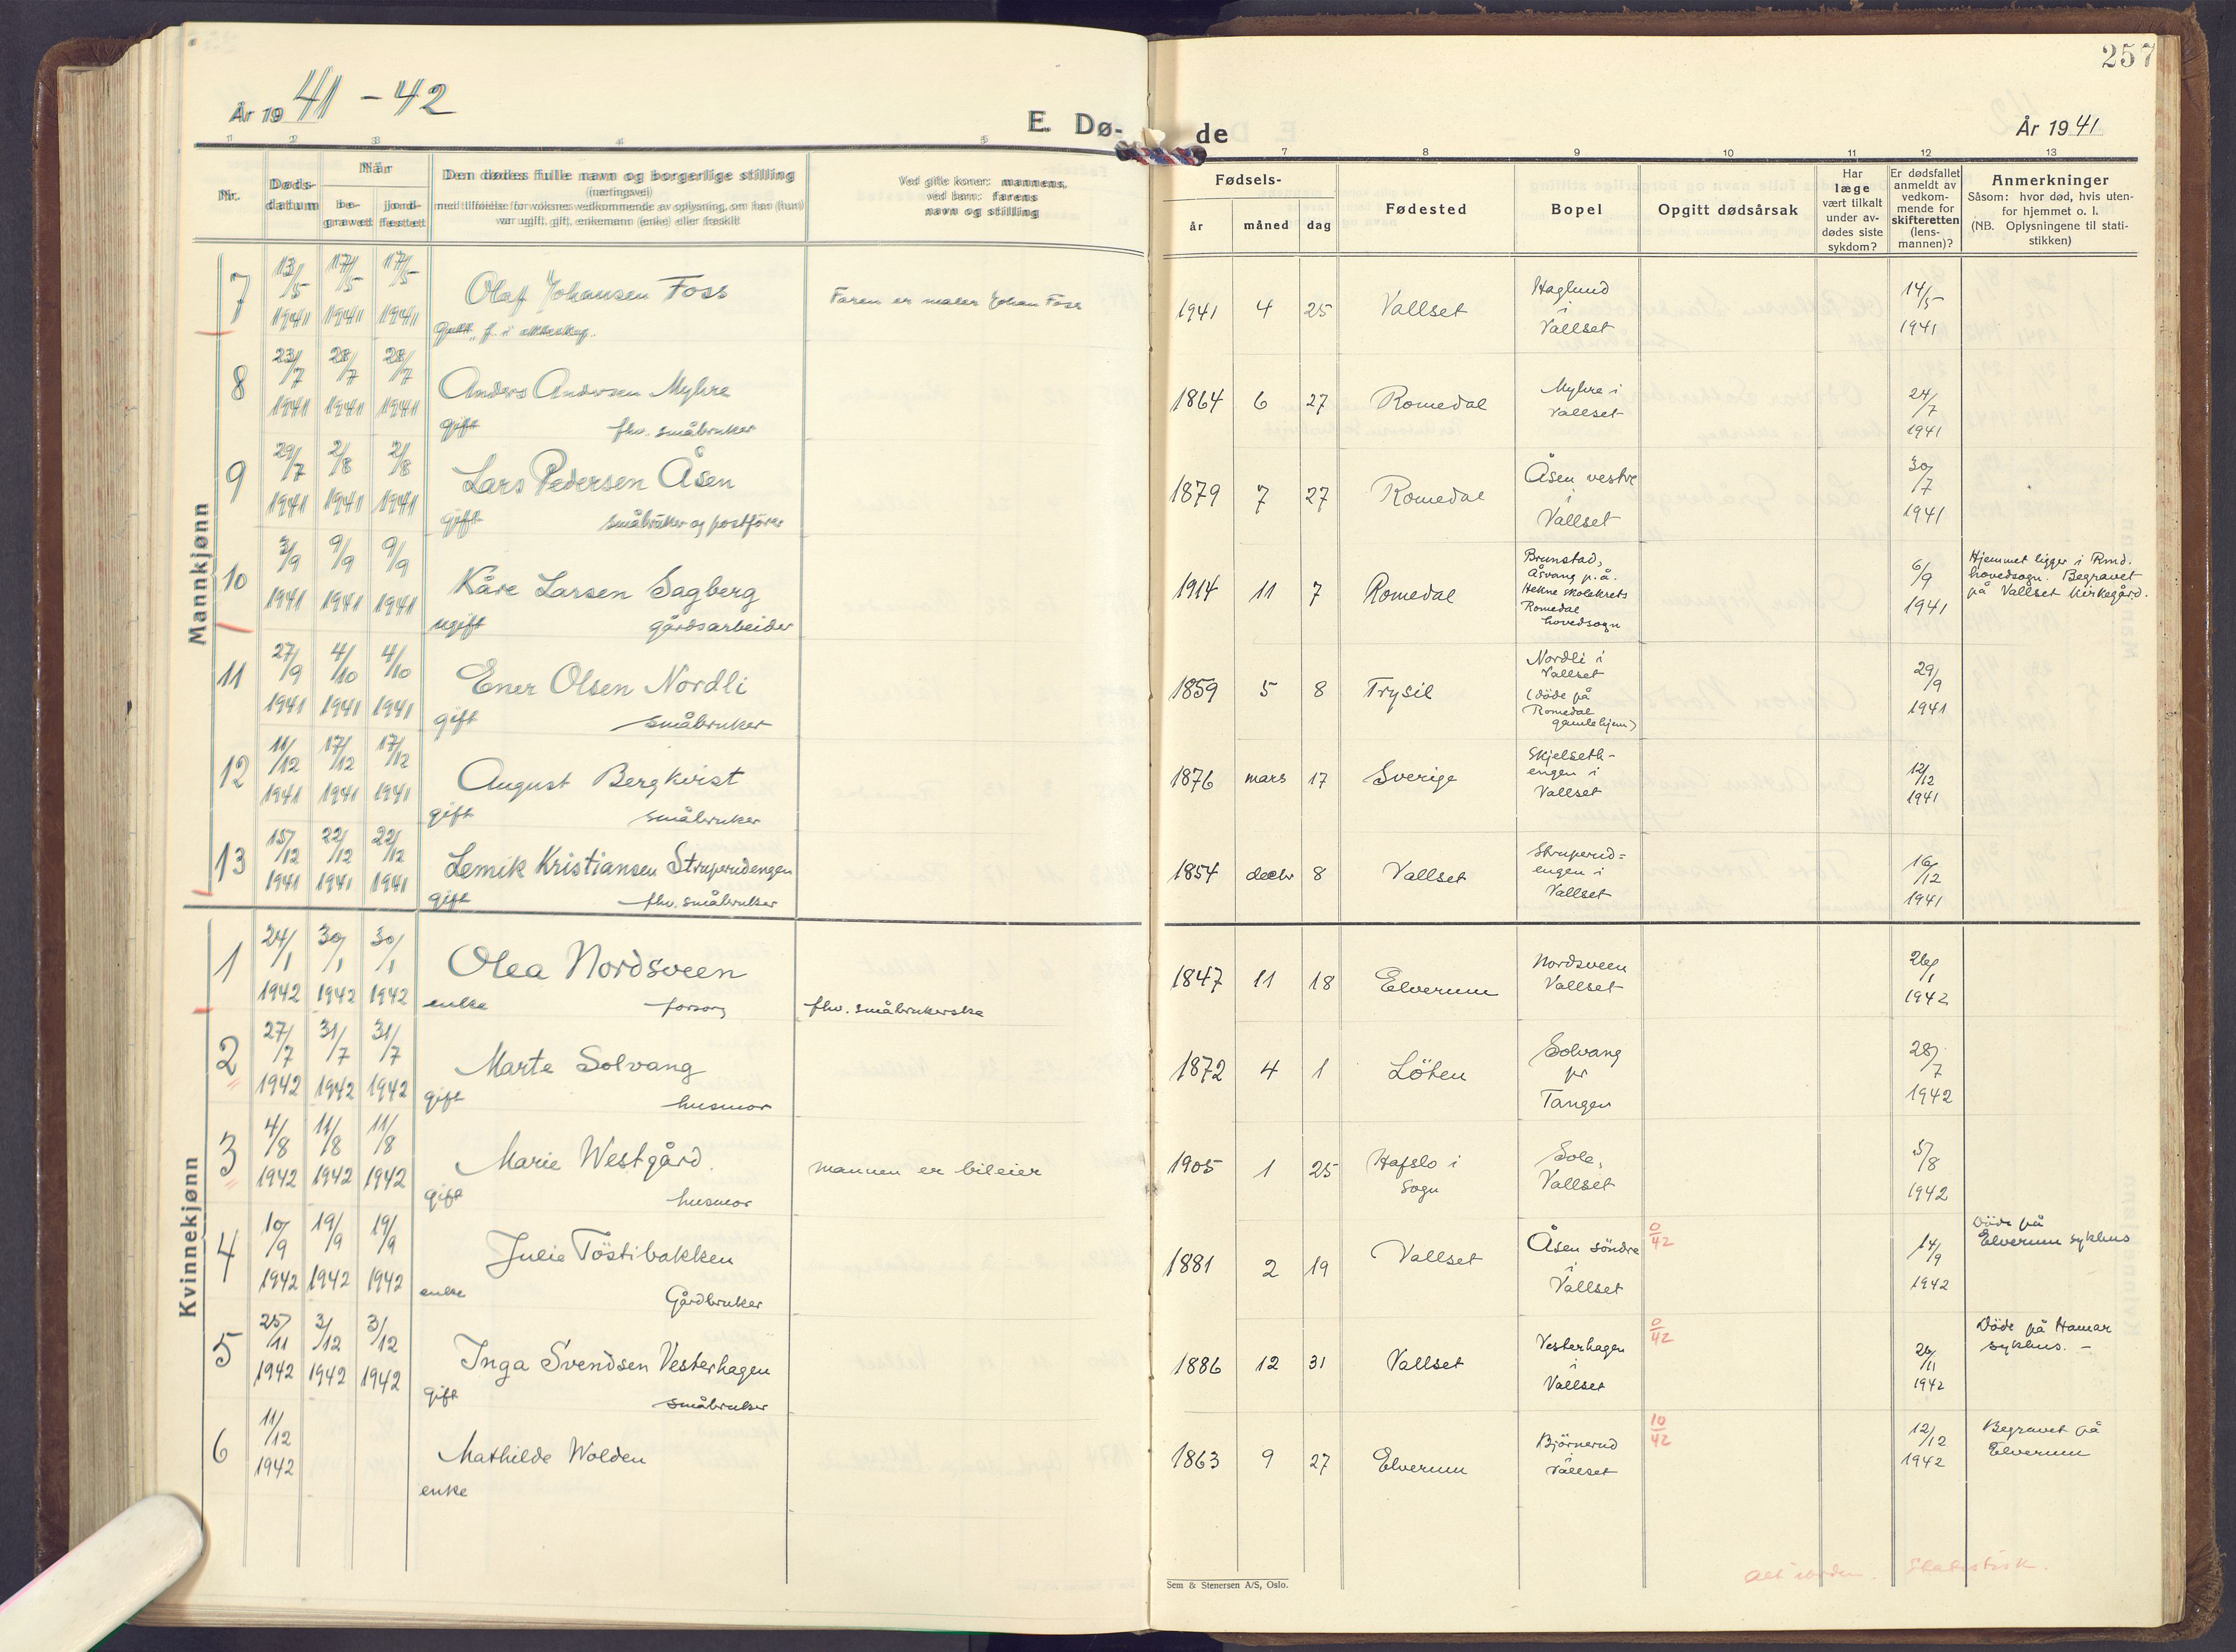 257
År 1941 - 42
E. Dø-
de
År 1941
1 2 3 4 5
7 8 9 10 11 12 13
Nr.
Døds-
datum
Når
be-
gravet
jord-
festet
Den dødes fulle navn og borgerlige stilling
(næringsvei)
med tilføielse for voksnes vedkommende av oplysning, om han (hun)
var ugift, gift, enkemann (enke) eller fraskilt
Ved gifte koner: mannens,
ved barn: farens
navn og stilling
Fødsels-
år måned dag
Fødested
Bopel
Opgitt dødsårsak
Har
læge
vært tilkalt
under av-
dødes siste
sykdom?
Er dødsfallet
anmeldt av
vedkom-
mende for
skifteretten
(lens-
mannen)?
Anmerkninger
Såsom: hvor død, hvis uten-
for hjemmet o. l.
(NB. Oplysningene til stati-
stikken)
Mannkjønn
7 13/5 1941 17/5 1941 17/5 1941
Olaf Johansen Foss
Faren er maler Johan Foss
1941 4 25 Vallset
Haglund
i
Vallset
14/5 1941
8 23/7 1941 28/7 1941 28/7 1941
Anders Andersen Myhre
gift fhv. småbruker
1864 6 27 Romedal
Myhre i
Vallset
24/7 1941
9 29/7 1941 2/8 1941 2/8 1941
Lars Pedersen Åsen
gift småbruker og postfører
1879 7 27 Romedal
Åsen vestre
i
Vallset
30/7 1941
10 3/9 1941 9/9 1941 9/9 1941
Kåre Larsen Sagberg
ugift gårdsarbeider
1914 11 7 Romedal
Brunstad,
Åsvang p.å.
Hekne skolekrets
Romedal
hovedsogn
6/9 1941
Hjemmet ligger i Rmd.
hovedsogn. Begravet
på Vallset kirkegård.
11 27/9 1941 4/10 1941 4/10 1941
Ener Olsen Nordli
gift småbruker
1859 5 8 Trysil
Nordli i
Vallset
(døde på
Romedal
gamlehjem)
29/9 1941
12 11/12 1941 17/12 1941 17/12 1941
August Bergkvist
gift småbruker
1876 mars 17 Sverige
Skjelseth-
engen i
Vallset
12/12 1941
13 15/12 1941 22/12 1941 22/12 1941
Lemik Kristiansen Struperudengen
gift fhv. småbruker
1854 decbr 8 Vallset
Struperud=
engen i
Vallset
16/12 1941
Kvinnekjønn
1 24/1 1942 30/1 1942 30/1 1942
Olea Nordsveen
enke forsorg
fhv. småbrukerske
1847 11 18 Elverum
Nordsveen
Vallset
26/1 1942
2 27/7 1942 31/7 1942 31/7 1942
Marte Solvang
gift husmor
1872 4 1 Löten
Solvang
pr
Tangen
28/7 1942
3 4/8 1942 11/8 1942 11/8 1942
Marie Westgård.
gift husmor
mannen er bileier
1905 1 25 Hafslo i
Sogn
Sole,
Vallset
5/8 1942
4 10/9 1942 19/9 1942 19/9 1942
Julie Töstibakken
enke Gårdbruker
1881 2 19 Vallset
Åsen söndre
i
Vallset
0/42
14/9 1942
Döde på
Elverum sykhus
5 25/11 1942 3/12 1942 3/12 1942
Inga Svendsen Vesterhagen
gift småbruker
1886 12 31 Vallset
Vesterhagen
i
Vallset
0/42
26/11 1942
Döde på Hamar
sykhus. -
6 11/12 1942
Mathilde Wolden
enke
1863 9 27 Elverum
Björnerud
i
Vallset
10/42
12/12 1942
Begravet på
Elverum
Sem & Stenersen A/S, Oslo.
Statistisk.